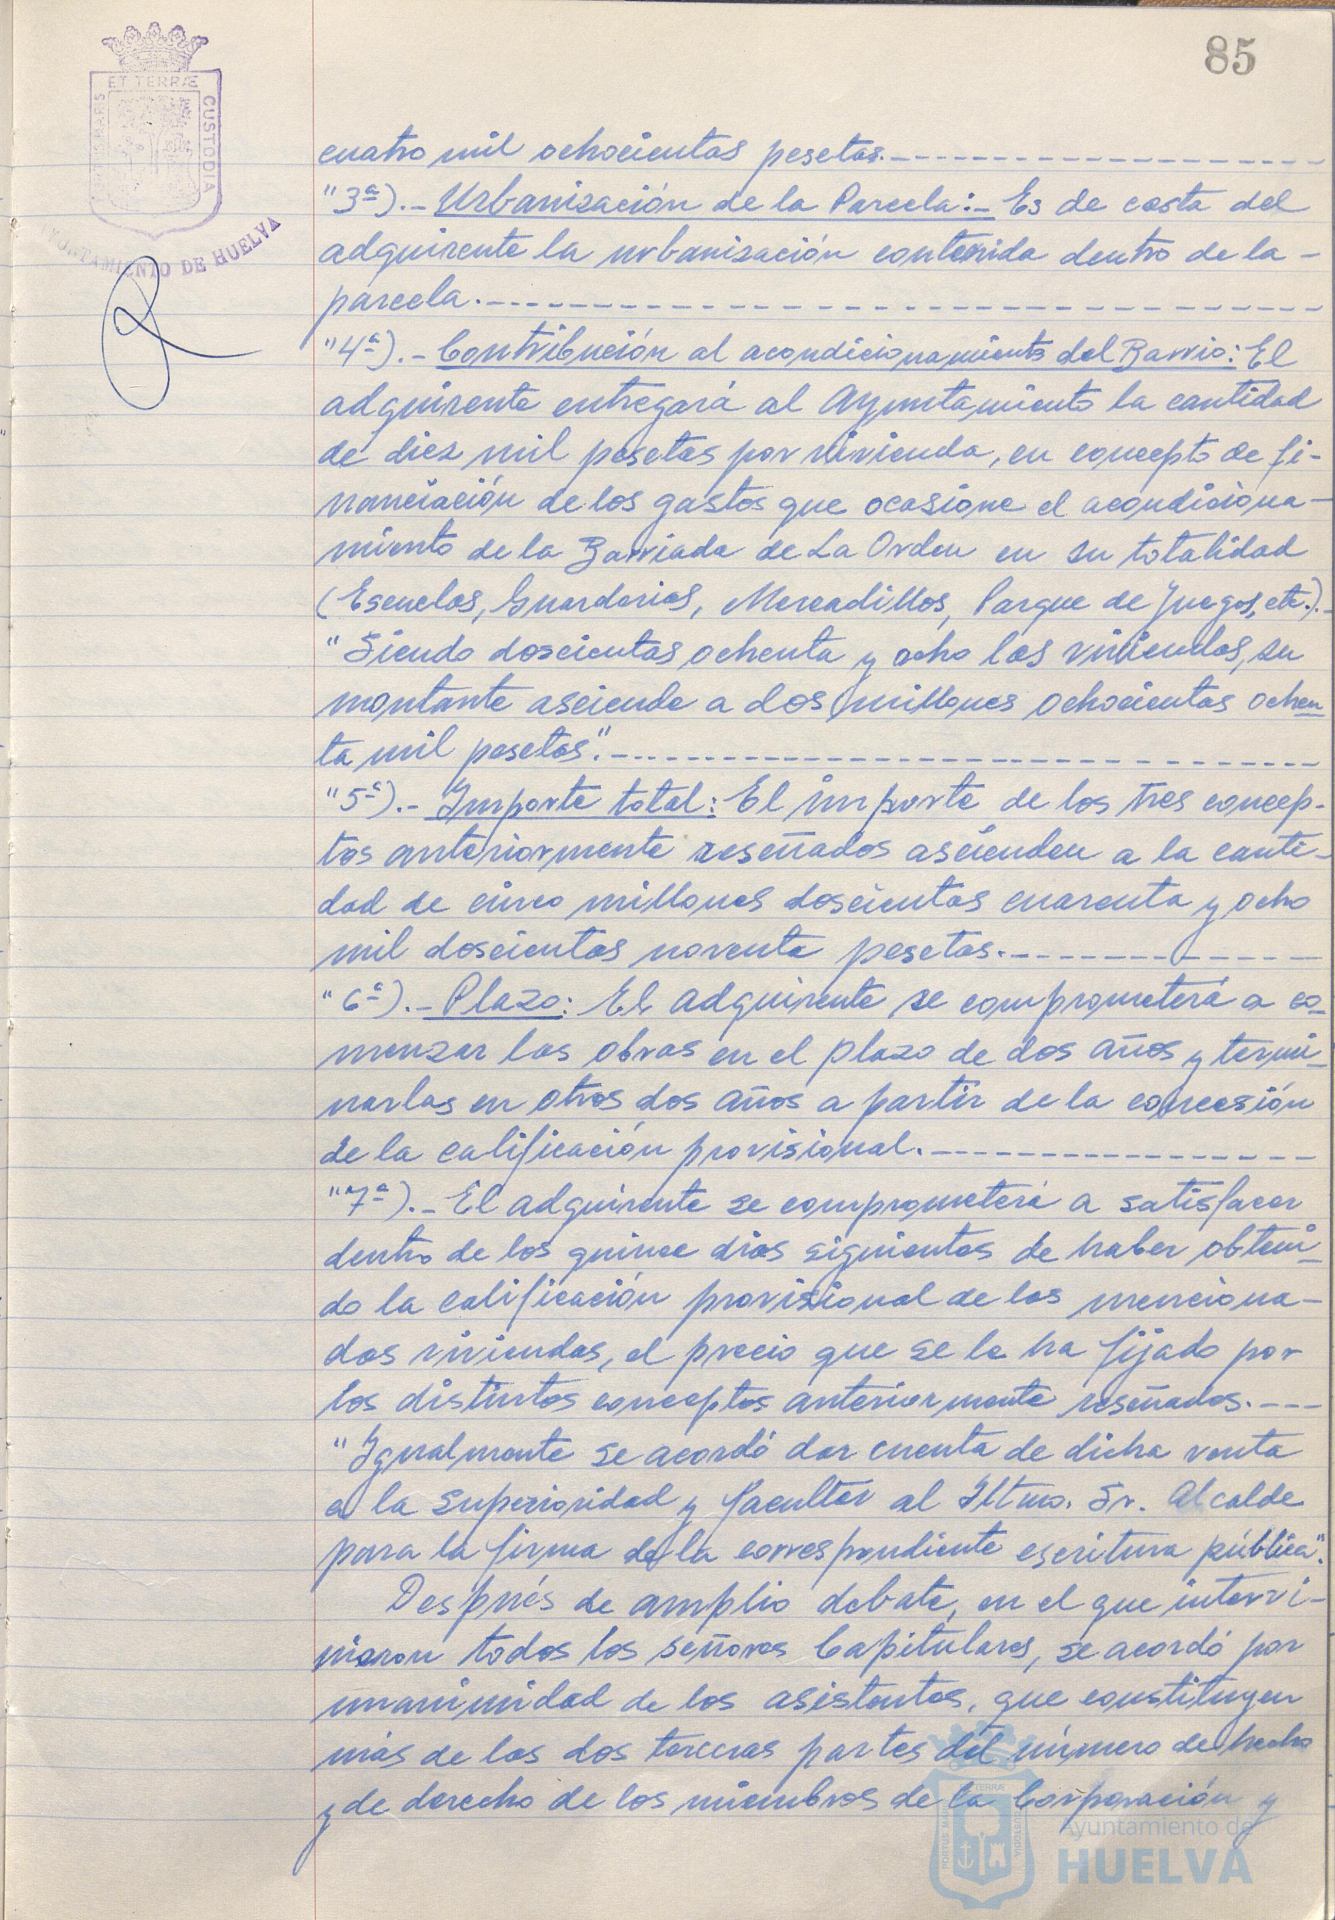 85
PORTUS MARIS ET TERRÆ CUSTODIA
AYUNTAMIENTO DE HUELVA
cuatro mil ochocientas pesetas.--------------------
"3ª).- Urbanización de la Parcela:- Es de costa del
adquirente la urbanización contenida dentro de la -
parcela.------------------------------
"4ª).- Contribución al acondicionamiento del Barrio: El
adquirente entregará al Ayuntamiento la cantidad
de diez mil pesetas por vivienda, en concepto de fi-
nanciación de los gastos que ocasione el acondiciona-
miento de la Barriada de La Orden en su totalidad
(Escuelas, Guarderias, Mercadillos, Parque de Juegos, etc.).-
"Siendo doscientas ochenta y ocho las viviendas, su
montante asciende a dos millones ochocientas ochen
ta mil pesetas".------------------------------
"5ª).- Importe total: El importe de los tres concep-
tos anteriormente reseñados ascienden a la canti-
dad de cinco millones doscientas cuarenta y ocho
mil doscientas noventa pesetas.--------------
"6ª).- Plazo: El adquirente se comprometerá a co-
menzar las obras en el plazo de dos años y termi-
narlas en otros dos años a partir de la concesión
de la calificación provisional.-----------------
"7ª).- El adquirente se comprometerá a satisfacer
dentro de los quince dias siguientes de haber obteni-
do la calificación provisional de las menciona-
das viviendas, el precio que se le ha fijado por
los distintos conceptos anteriormente reseñados.---
"Igualmente se acordó dar cuenta de dicha venta
a la Superioridad y facultar al Iltmo. Sr. Alcalde
para la firma de la correspondiente escritura pública".
Después de amplio debate, en el que intervi-
nieron todos los señores Capitulares, se acordó por
unanimidad de los asistentes, que constituyen
más de las dos terceras partes del número de hecho
y de derecho de los miembros de la Corporación y
PORTUS MARIS ET TERRÆ CUSTODIA
Ayuntamiento de
HUELVA